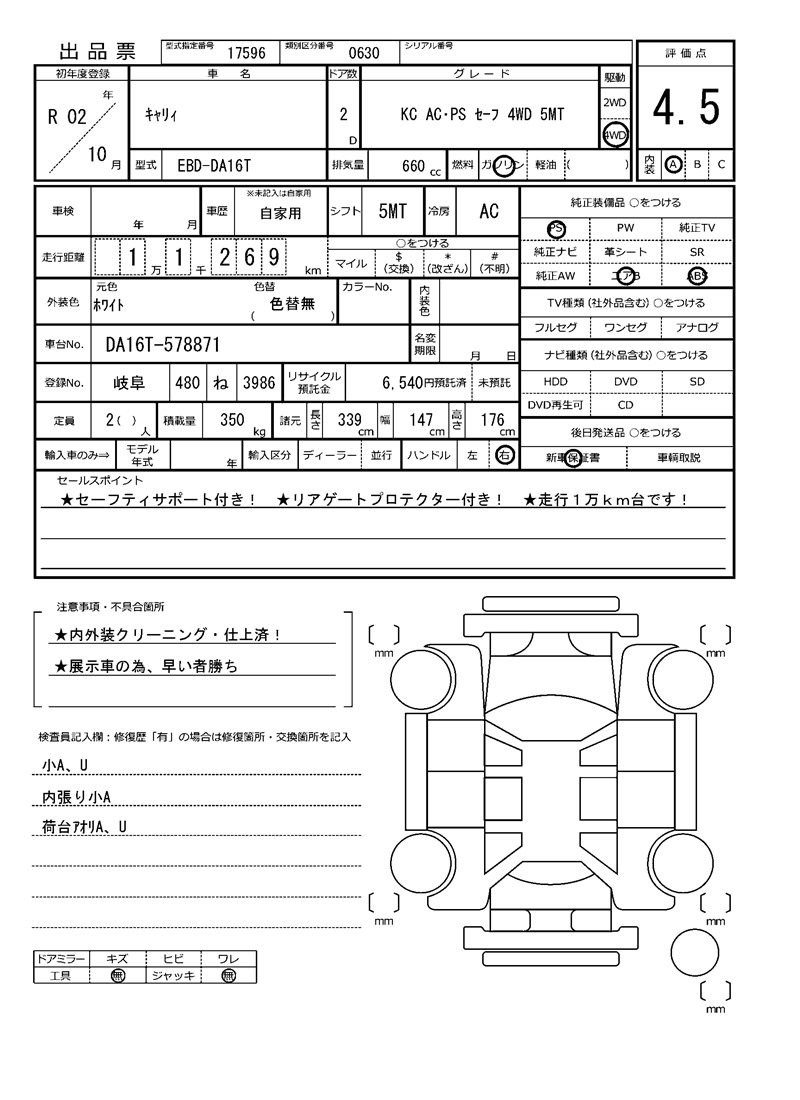 出品票 型式指定番号 17596 類別区分番号 0630 シリアル番号
初年度登録 車名 ドア数 グレード 駆動 評価点
R 02 年 10 月 ｷｬﾘｨ 2 D KC AC･PS ｾｰﾌ 4WD 5MT 2WD 4WD 4.5
型式 EBD-DA16T 排気量 660 cc 燃料 ガソリン 軽油 ( ) 内装 A B C
車検 年 月 車歴 ※未記入は自家用 自家用 シフト 5MT 冷房 AC
走行距離 1 万 1 千 2 6 9 km ○をつける マイル $ (交換) * (改ざん) # (不明)
外装色 元色 ﾎﾜｲﾄ 色替 ( 色替無 ) カラーNo. 内装色
車台No. DA16T-578871 名変期限 月 日
登録No. 岐阜 480 ね 3986 リサイクル預託金 6,540円預託済 未預託
定員 2( ) 人 積載量 350 kg 諸元 長さ 339 cm 幅 147 cm 高さ 176 cm
輸入車のみ⇒ モデル年式 年 輸入区分 ディーラー 並行 ハンドル 左 右
純正装備品 ○をつける
PS PW 純正TV
純正ナビ 革シート SR
純正AW エアB ABS
TV種類 (社外品含む) ○をつける
フルセグ ワンセグ アナログ
ナビ種類 (社外品含む) ○をつける
HDD DVD SD
DVD再生可 CD
後日発送品 ○をつける
新車保証書 車輌取説
セールスポイント
★セーフティサポート付き！ ★リアゲートプロテクター付き！ ★走行１万ｋｍ台です！
注意事項・不具合箇所
★内外装クリーニング・仕上済！
★展示車の為、早い者勝ち
検査員記入欄：修復歴「有」の場合は修復箇所・交換箇所を記入
小A、U
内張り小A
荷台ｱｵﾘA、U
ドアミラー キズ ヒビ ワレ
工具 無 ジャッキ 無
mm mm
mm mm
mm